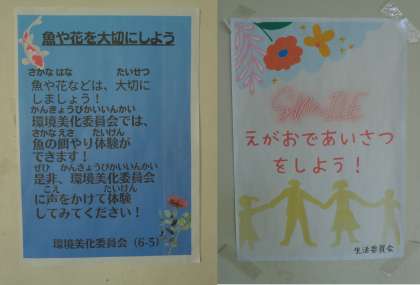 魚や花を大切にしよう
さかな はな たいせつ
魚や花などは、大切に
しましょう！
かんきょうびかいいんかい
環境美化委員会では、
さかな えさ たいけん
魚の餌やり体験が
できます！
ぜひ かんきょうびかいいんかい
是非、環境美化委員会
こえ たいけん
に声をかけて体験
してみてください！
環境美化委員会（6-5）
SMILE
えがおであいさつ
をしよう！
生活委員会